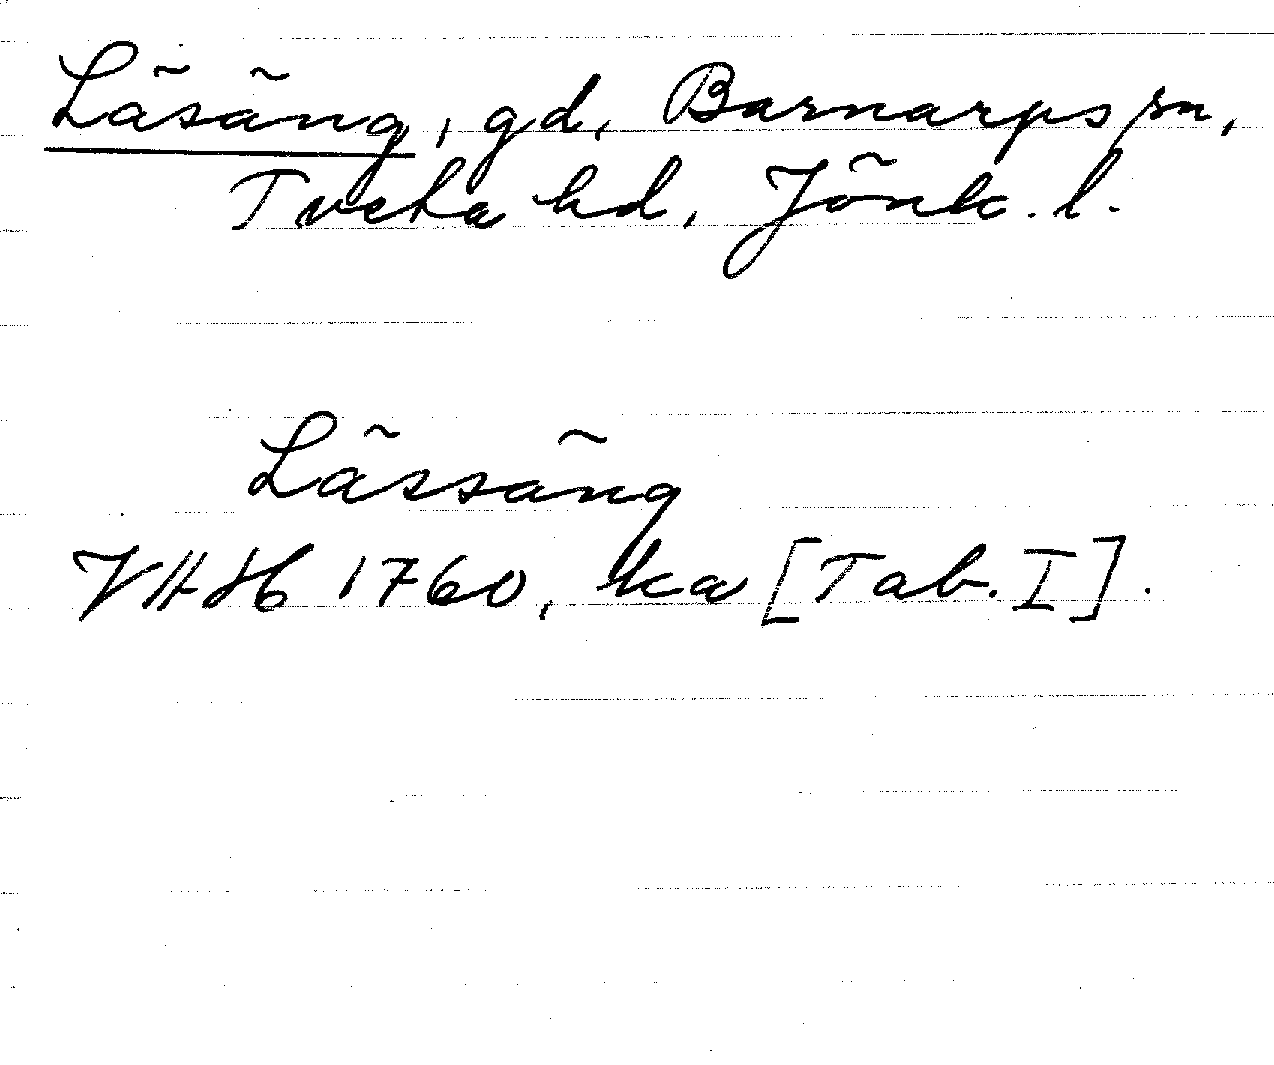 Läsäng, gd, Barnarps sn,
Tveta hd, Jönk. l.
Lässäng
VHAH 1760, ka [Tab. I].